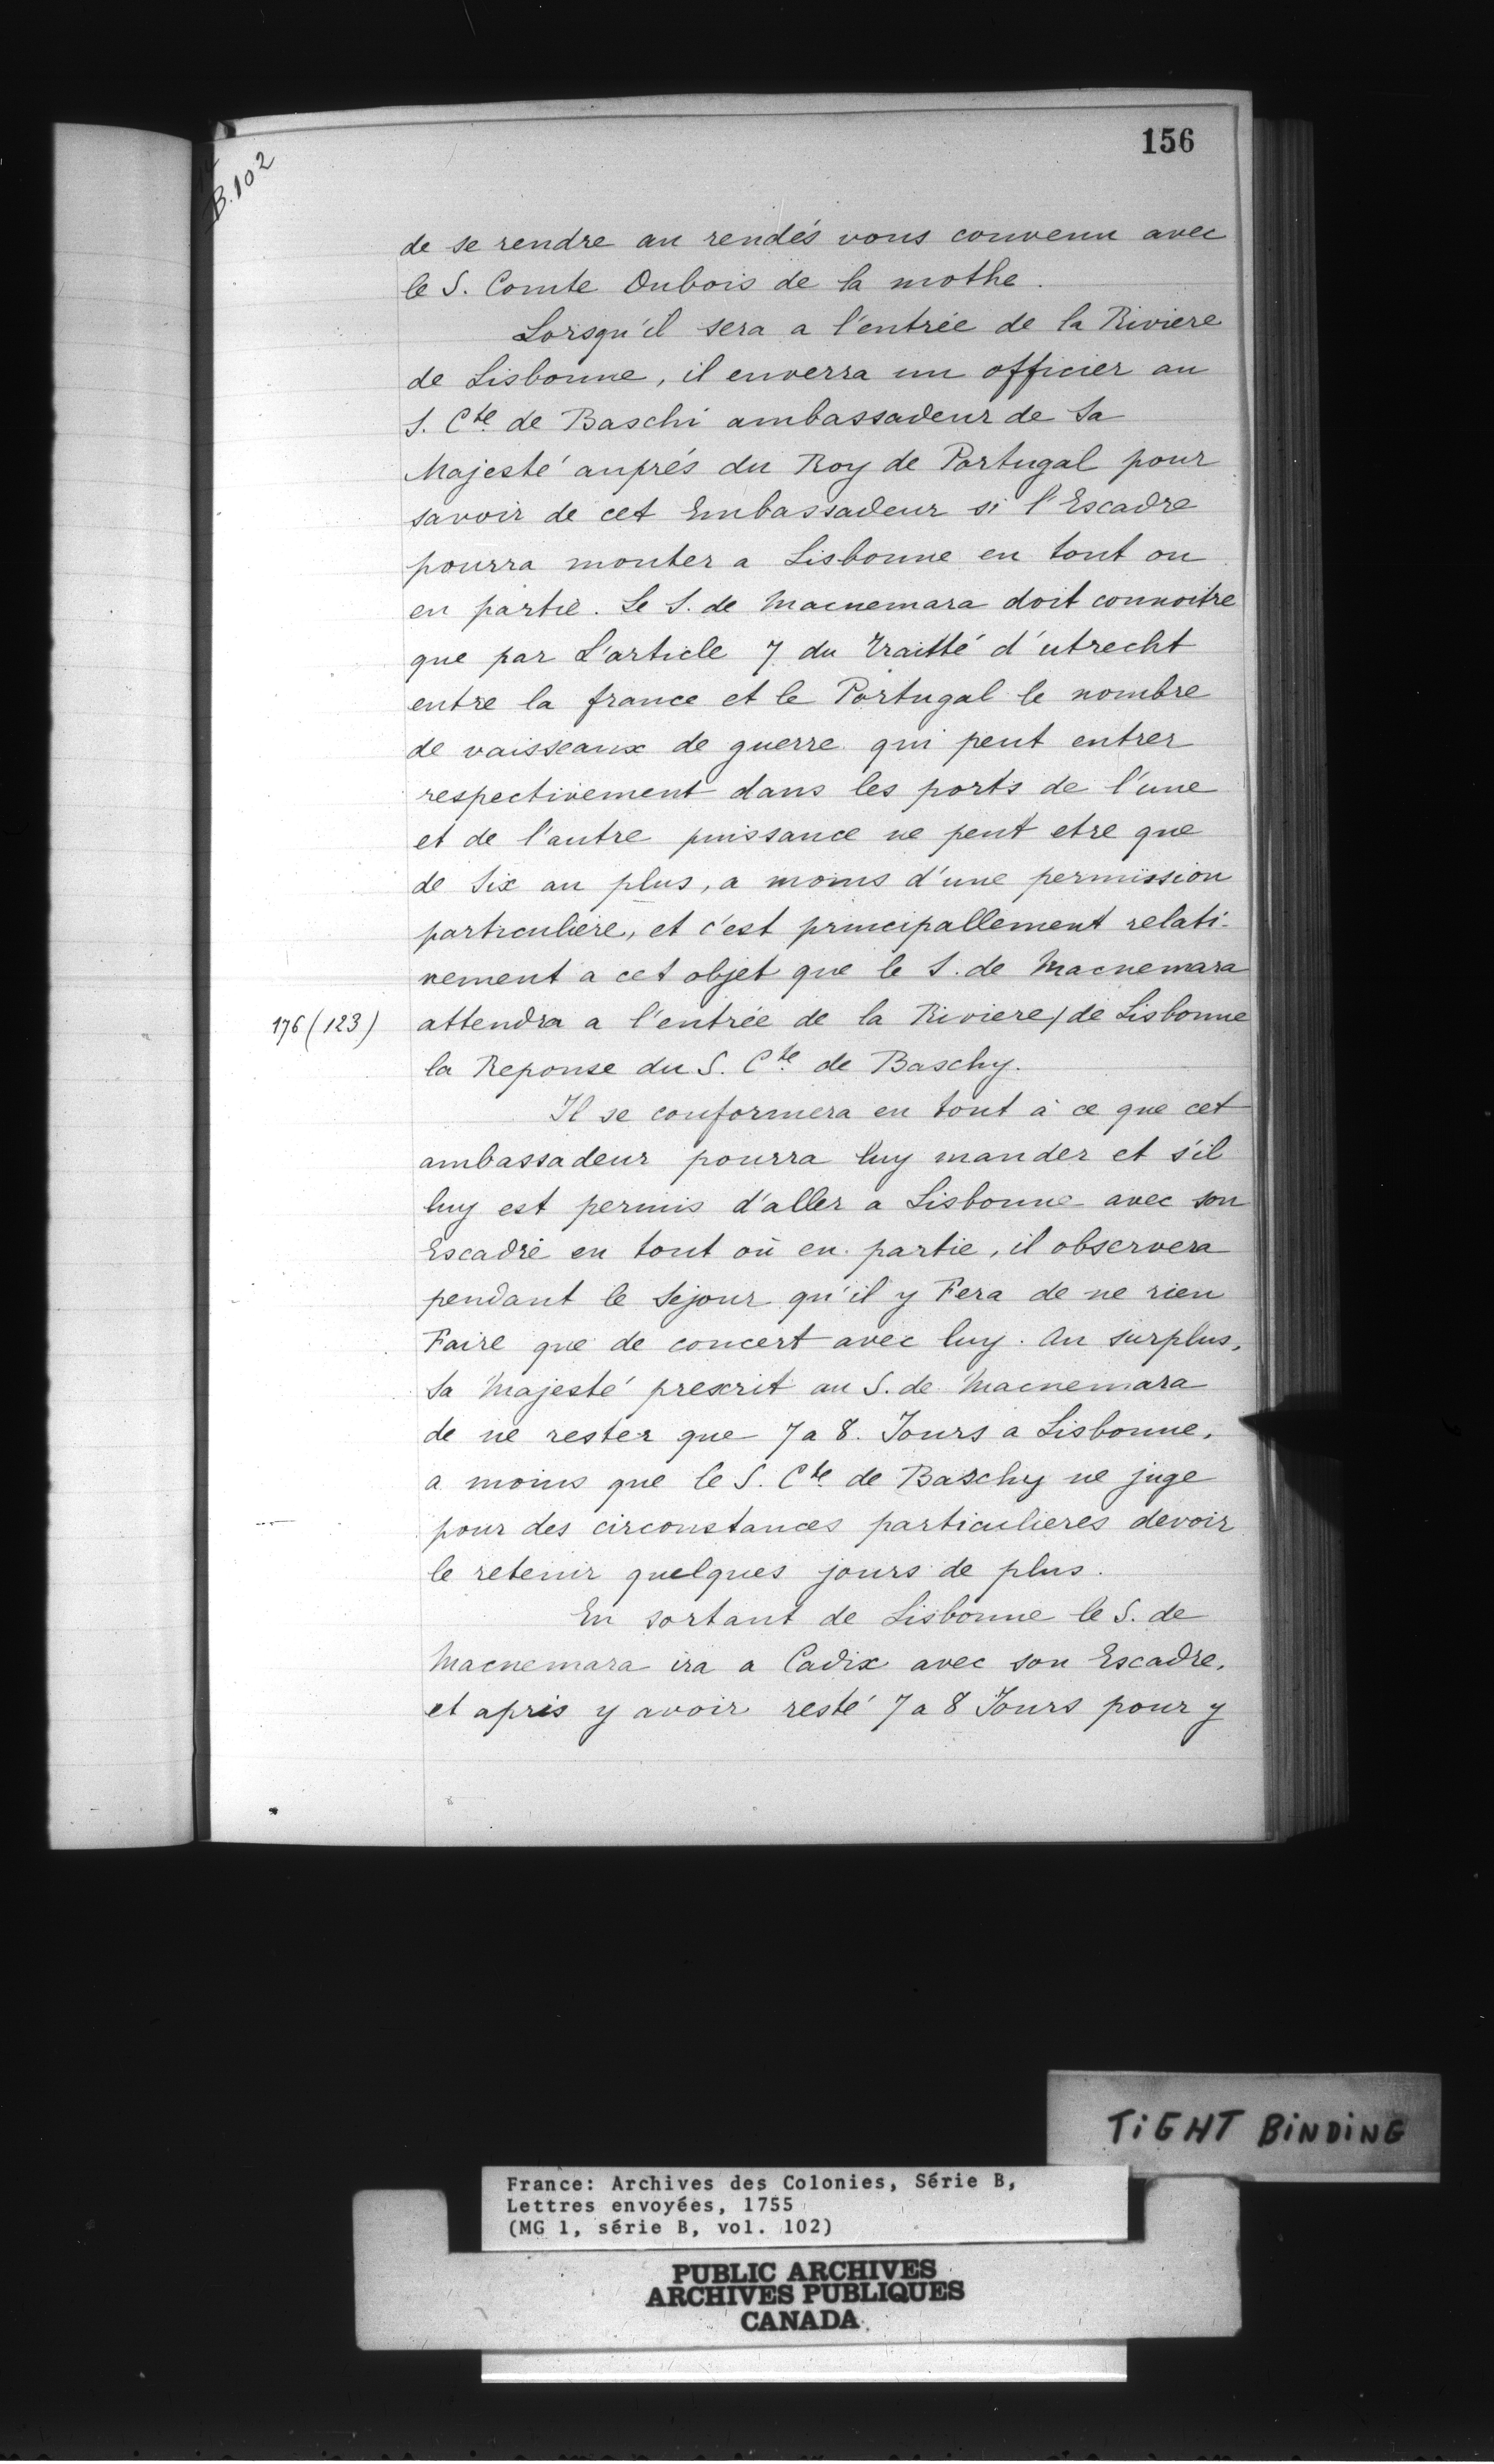 156
B.102
de se rendre au rendés vous convenu avec
le S. Comte Dubois de la mothe.
Lorsqu'il sera a l'entrée de la Riviere
de Lisbonne, il enverra un officier au
S. Cte de Baschi ambassadeur de Sa
Majesté auprés du Roy de Portugal pour
savoir de cet Embassadeur si l'Escadre
pourra monter a Lisbonne en tout ou
en partie. Le S. de Macnemara doit connoitre
que par L'article 7 du traitté d'utrecht
entre la france et le Portugal le nombre
de vaisseaux de guerre qui peut entrer
respectivement dans les ports de l'une
et de l'autre puissance ne peut etre que
de Six au plus, a moins d'une permission
particuliere, et c'est principallement relati-
vement a cet objet que le S. de Macnemara
176 (123) attendra a l'entrée de la Riviere / de Lisbonne
la Reponse du S. Cte de Baschy.
Il se conformera en tout à ce que cet
ambassadeur pourra luy mander et s'il
luy est permis d'aller a Lisbonne avec son
Escadre en tout où en partie, il observera
pendant le Sejour qu'il y Fera de ne rien
Faire que de concert avec luy. Au surplus,
Sa Majesté prescrit au S. de Macnemara
de ne rester que 7 a 8. Jours a Lisbonne,
a moins que le S. Cte de Baschy ne juge
pour des circonstances particulieres devoir
le retenir quelques jours de plus.
En sortant de Lisbonne le S. de
Macnemara ira a Cadix avec son Escadre,
et aprés y avoir resté 7 a 8 Jours pour y
TIGHT BINDING
France: Archives des Colonies, Série B,
Lettres envoyées, 1755
(MG 1, série B, vol. 102)
PUBLIC ARCHIVES
ARCHIVES PUBLIQUES
CANADA